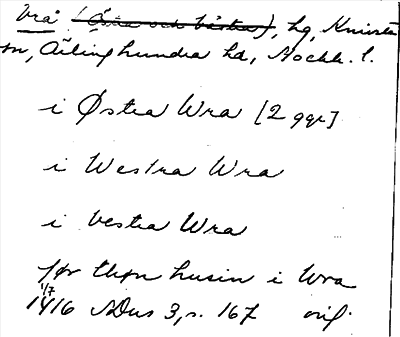 Vrå (Östra och Västra), hg, Knivsta
sn, Ärlinghundra hd, Stockh. l.
i Østra Wra [2 ggr]
i Westra Wra
i vestra Wra
før thøn husin i Wra
1/7
1416 SDns 3, s. 167 orig.